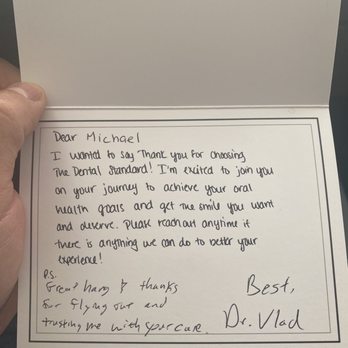 Dear Michael
I wanted to say Thank you for choosing
The Dental Standard! I'm excited to join you
on your journey to achieve your oral
health goals and get the smile you want
and deserve. Please reach out anytime if
there is anything we can do to better your
experience!
P.S.
Great & thanks
for flying out and
trusting me with your care.
Best,
Dr. Vlad